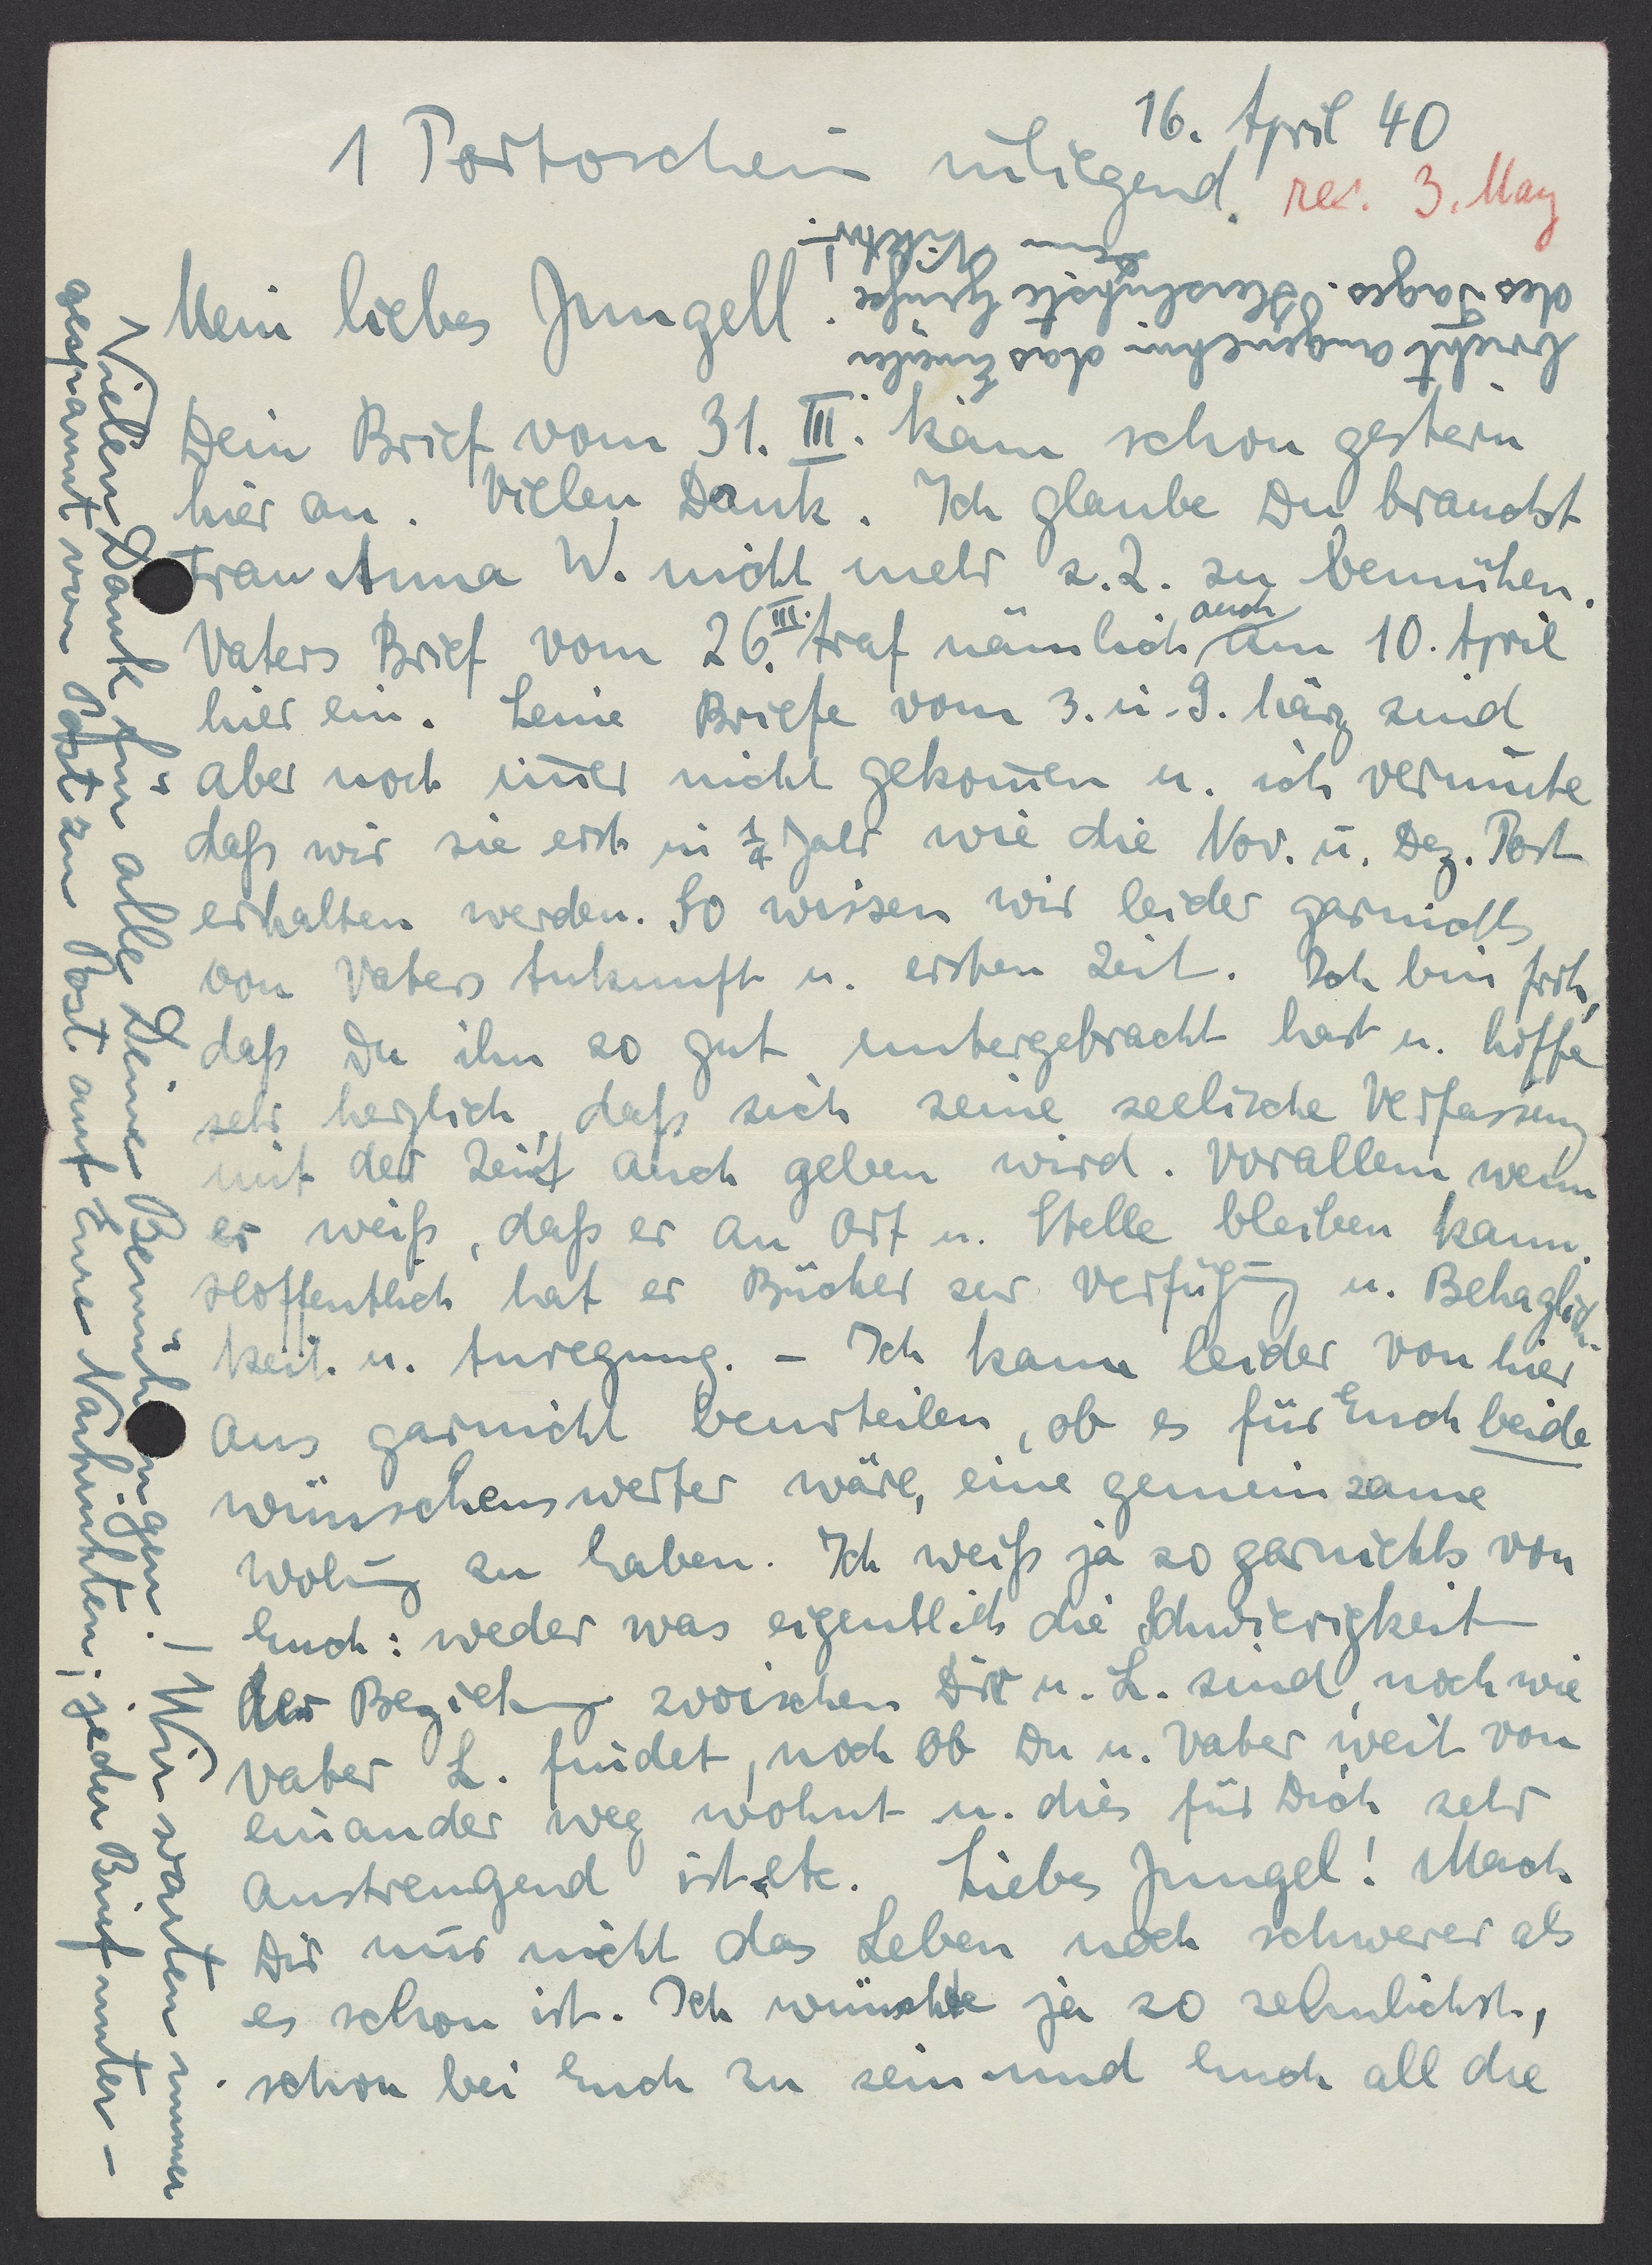 16. April 40
1 Portoschein inliegend.
rec. 3. May
Mein liebes Jungell!
Dein Brief vom 31. III. kam schon gestern
hier an. Vielen Dank. Ich glaube Du brauchst
Frau Anna W. nicht mehr z. Z. zu bemühen.
Vaters Brief vom 26. III. traf nämlich auch am 10. April
hier ein. Seine Briefe vom 3. u. 9. März sind
aber noch im̄er nicht gekom̄en u. ich vermute
daß wir sie erst in ¼ Jahr wie die Nov. u. Dez. Post
erhalten werden. So wissen wir leider garnichts
von Vaters Ankunft u. ersten Zeit. Ich bin froh,
daß Du ihn so gut untergebracht hast u. hoffe
sehr herzlich, daß sich seine seelische Verfassung
mit der Zeit auch geben wird. Vorallem wenn
er weiß, daß er an Ort u. Stelle bleiben kann.
Hoffentlich hat er Bücher zur Verfügung u. Behaglich-
keit u. Anregung. - Ich kann leider von hier
aus garnicht beurteilen, ob es für Euch beide
wünschenswerter wäre, eine gemeinsame
Wohng zu haben. Ich weiß ja so garnichts von
Euch: weder was eigentlich die Schwierigkeit
der Beziehung zwischen Dir u. L. sind, noch wie
Vater L. findet, noch ob Du u. Vater weit von
einander weg wohnt u. dies für Dich sehr
anstrengend ist etc. Liebes Jungel! Mach
Dir nur nicht das Leben noch schwerer als
es schon ist. Ich wünschte ja so sehnlichst,
schon bei Euch zu sein und Euch all die
Vielen Dank für alle Deine Bemühungen! - Wir warten immer
gespannt von Post zu Post auf Eure Nachrichten; jeder Brief unter-
bricht angenehm das Einerlei
des Tages. Herzlichste Grüße!
Dein Viktor.